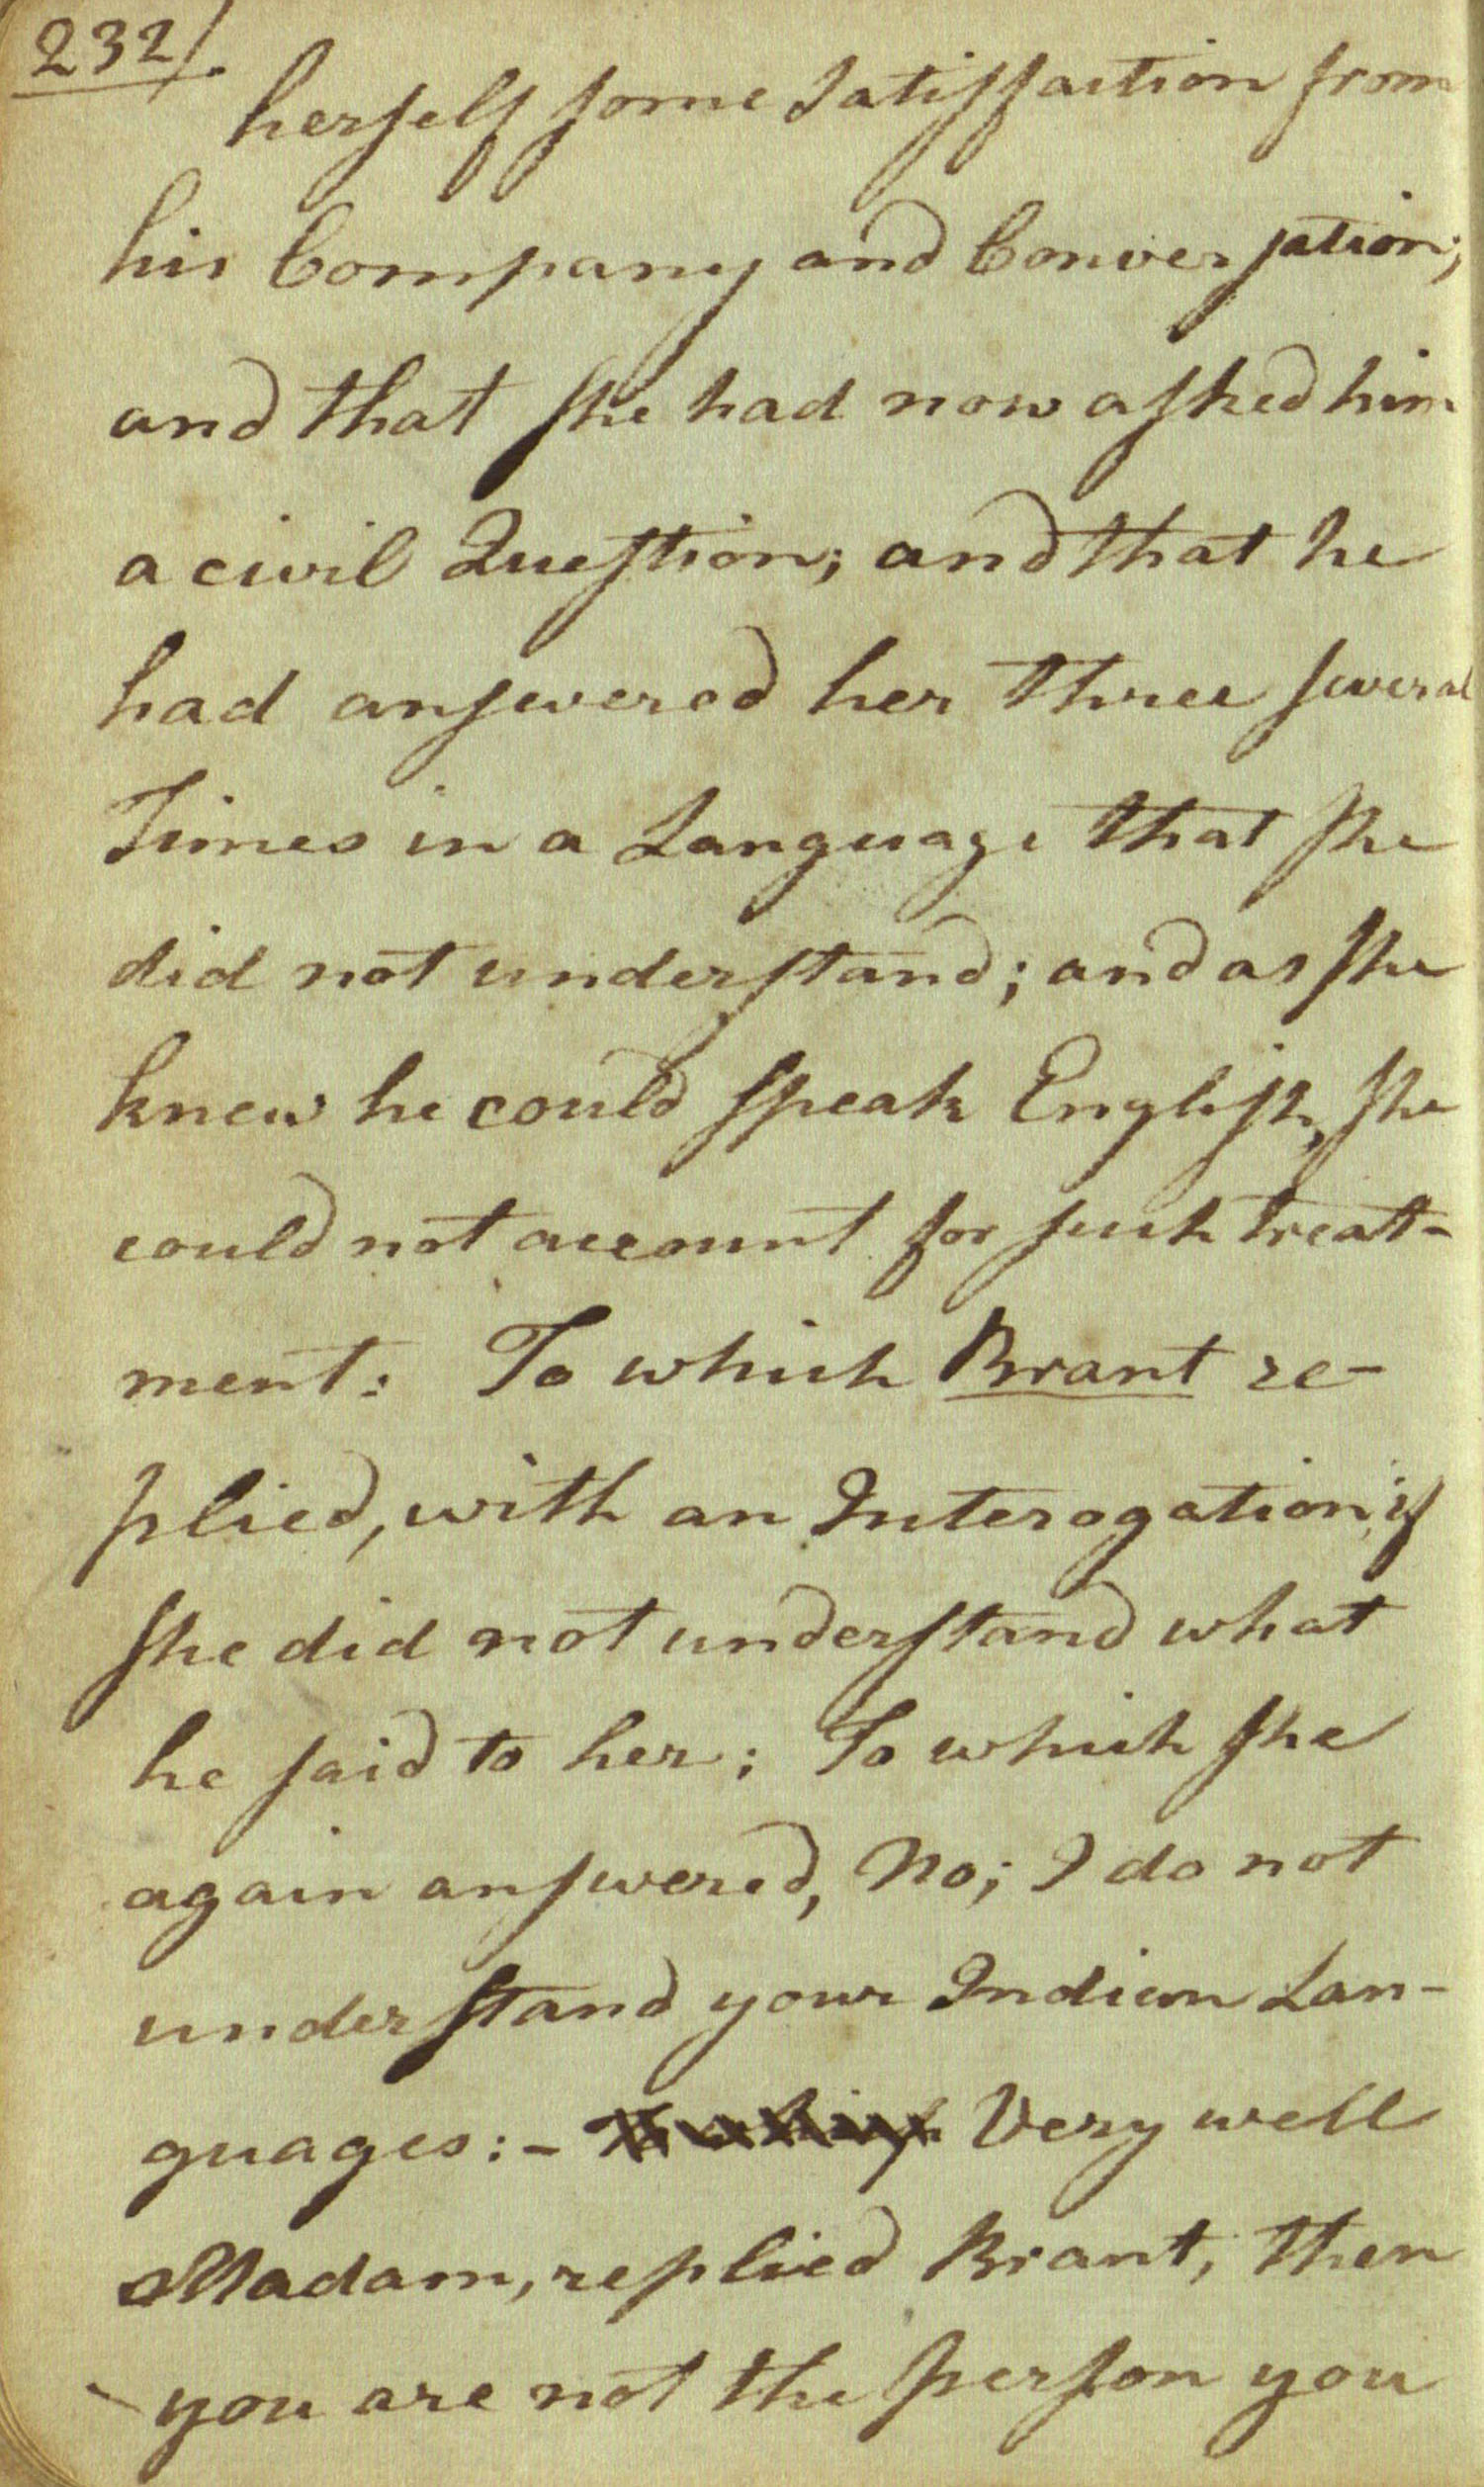 232/.
herself some Satisfaction from
his Company and Conversation;
and that she had now asked him
a civil Question; and that he
had answered her three several
Times in a Language that she
did not understand; and as she
knew he could speak English, she
could not account for such treat-
ment: To which Brant re-
plied, with an Interogation, if
she did not understand what
he said to her; To which she
again answered, No; I do not
understand your Indian Lan-
guages:- Very well
Madam, replied Brant, then
you are not the person you